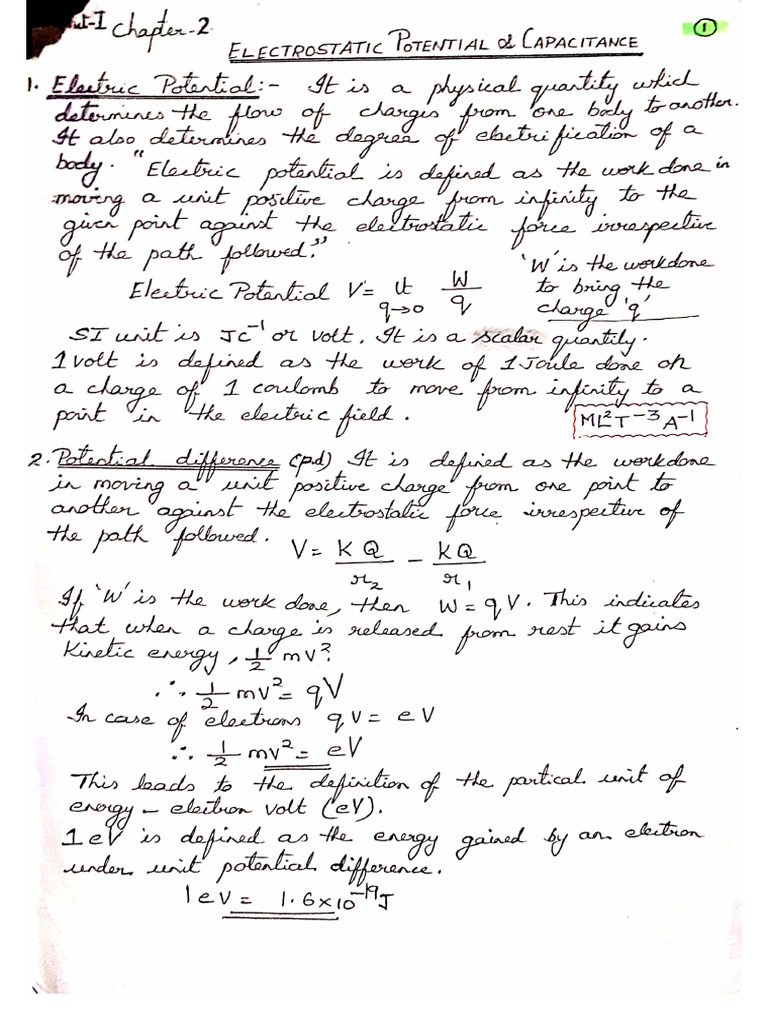 -I Chapter-2. 1
ELECTROSTATIC POTENTIAL & CAPACITANCE
1. Electric Potential:- It is a physical quantity which
determines the flow of charges from one body to another.
It also determines the degree of electrification of a
body. "Electric potential is defined as the work done in
moving a unit positive charge from infinity to the
given point against the electrostatic force irrespective
of the path followed."
Electric Potential V = lt q→0 W/q
'W' is the workdone
to bring the
charge 'q'
SI unit is JC⁻¹ or volt. It is a scalar quantity.
1 volt is defined as the work of 1 Joule done on
a charge of 1 coulomb to move from infinity to a
point in the electric field. ML²T⁻³A⁻¹
2. Potential difference (pd) It is defined as the workdone
in moving a unit positive charge from one point to
another against the electrostatic force irrespective of
the path followed.
V = KQ/r₂ - KQ/r₁
If 'W' is the work done, then W = qV. This indicates
that when a charge is released from rest it gains
Kinetic energy, 1/2 mv².
∴ 1/2 mv² = qV
In case of electrons qV = eV
∴ 1/2 mv² = eV
This leads to the definition of the partical unit of
energy - electron volt (eV).
1 eV is defined as the energy gained by an electron
under unit potential difference.
1eV = 1.6×10⁻¹⁹J